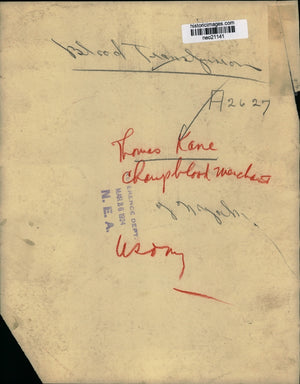 historicimages.com
neo21141
Blood Transfusion
A2627
Thomas Kane
Champ blood merchant
of
REFERENCE DEPT.
MAR 26 1924
N. E. A.